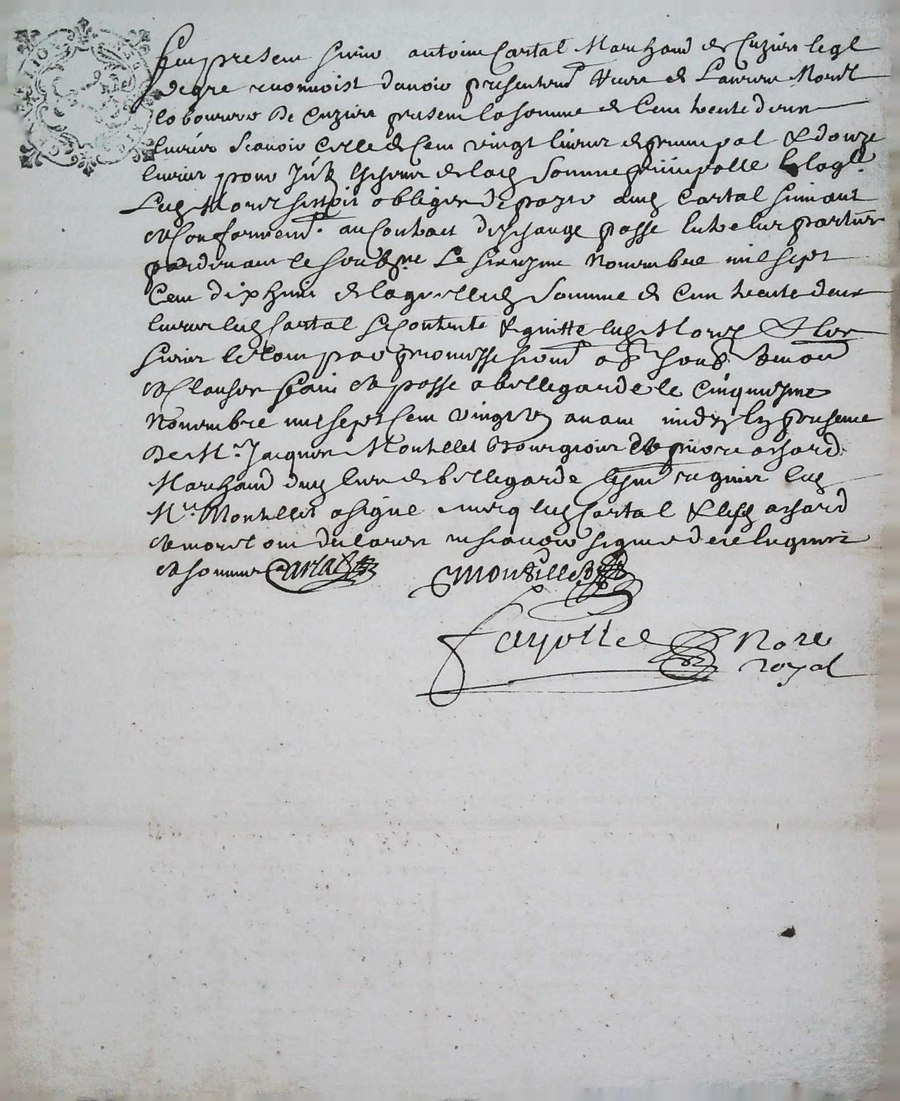 Fut present sieur antoine Cartal Marchand de Cuzieu lequel
degre reconnoist davoir presentemt Receu de Laurens Morel
laboureur De Cuzieu present la somme de Cent trente deux
livres Scavoir Celle de Cent vingt livres de principal & douze
livres pour de lad somme principalle laql
led Morel sestoit obligé de payer aud Cartal suivant
et Conformemt au Contract deschange passé entre les parties
pardevant le soubne Le novembre mil sept
Cent dix huit de laquelle somme de Cent trente deux
livres led Cartal se Contente & quitte led Morel &
par promesse
et Clauses fait et passé a bellegarde le cinquiesme
Novembre mil sept Cent vingt avant midy En presence
De Mr Jacques Montellet Bourgeois et pierre assard
Marchand dud lieu de bellegarde tesmoins led
Mr Montellet a signé avecq led Cartal & led assard
et morel ont declaré ne scavoir signer de ce Enquis
et sommés Cartal Montellet
Fayolle Nore
royal